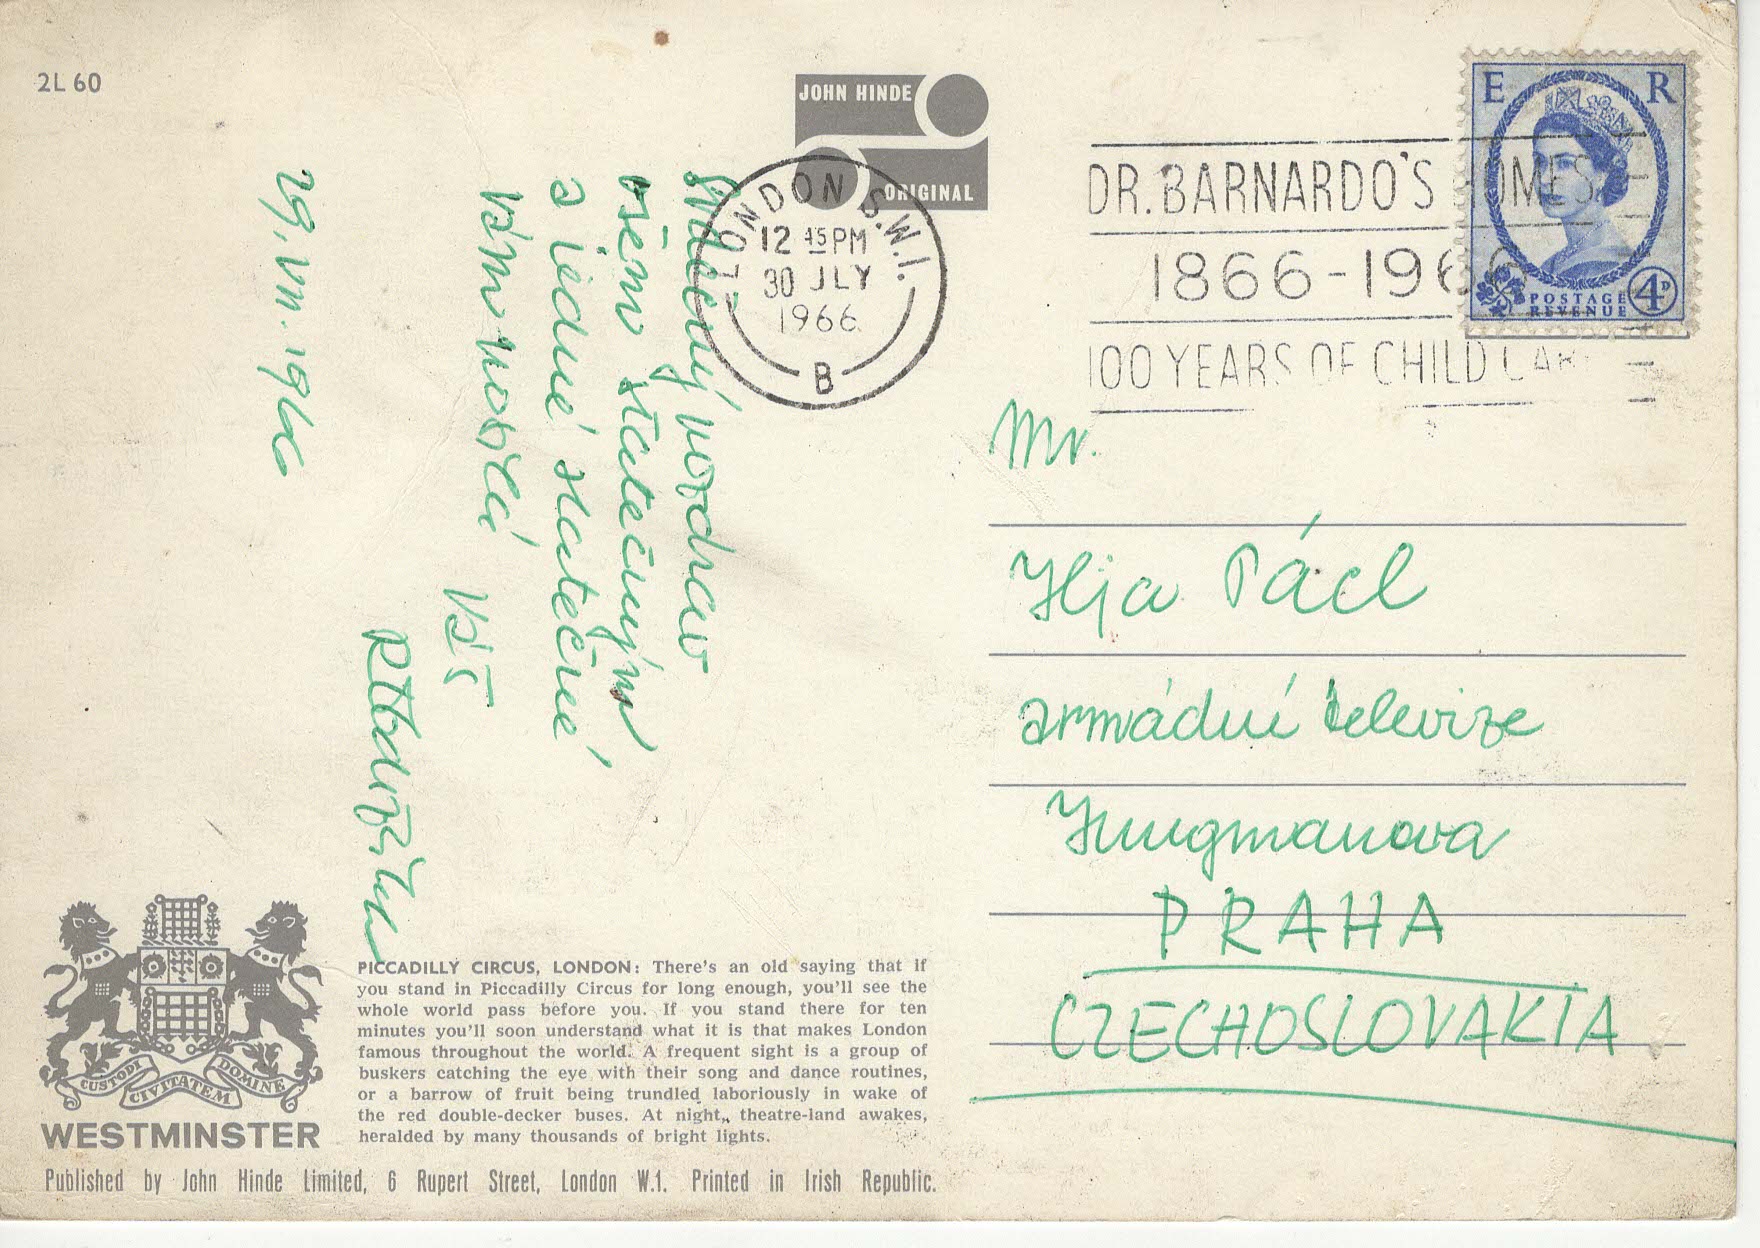 2L 60
JOHN HINDE
ORIGINAL
LONDON S.W.1.
12 45 PM
30 JLY
1966
B
DR. BARNARDO'S HOMES
1866-1966
100 YEARS OF CHILD CARE
E R
POSTAGE
REVENUE
4D
Srdečný pozdrav
všem statečným
a jedné statečné
Vám
Váš
29. VII. 1966
Mr.
Ilja Pácl
armádní televize
Jungmanova
PRAHA
CZECHOSLOVAKIA
CUSTODI CIVITATEM DOMINE
WESTMINSTER
PICCADILLY CIRCUS, LONDON: There's an old saying that if
you stand in Piccadilly Circus for long enough, you'll see the
whole world pass before you. If you stand there for ten
minutes you'll soon understand what it is that makes London
famous throughout the world. A frequent sight is a group of
buskers catching the eye with their song and dance routines,
or a barrow of fruit being trundled laboriously in wake of
the red double-decker buses. At night, theatre-land awakes,
heralded by many thousands of bright lights.
Published by John Hinde Limited, 6 Rupert Street, London W.1. Printed in Irish Republic.